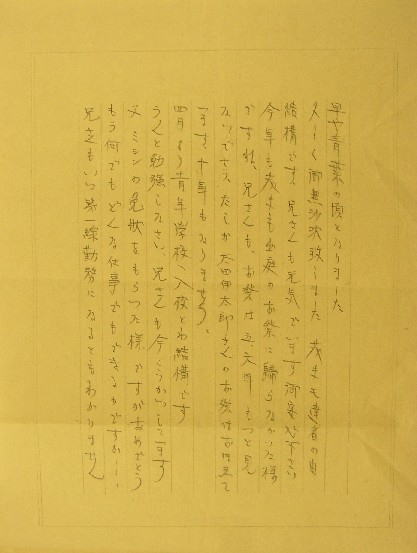 早や青葉の頃となりました
久しく御無沙汰致しました 茂夫も達者の由
結構です、兄さんも元気で居ます御安心下さい
今年も茂夫も山産のお祭に帰らなかった様
ですね、兄さんも、お祭は五、六年もつと見
ないでさえ、たしか 太郎さんのお発は
ます、十年もなりませう、
四月より青年学校へ入校とか結構です
うんと勉強しなさい、兄さんも今 して居ます
父 ミシンの免状をもらつた様ですがおめでとう
もう何でもどんな仕事でもできるのですか
兄さんもいつ第一線勤務になるともわかりません